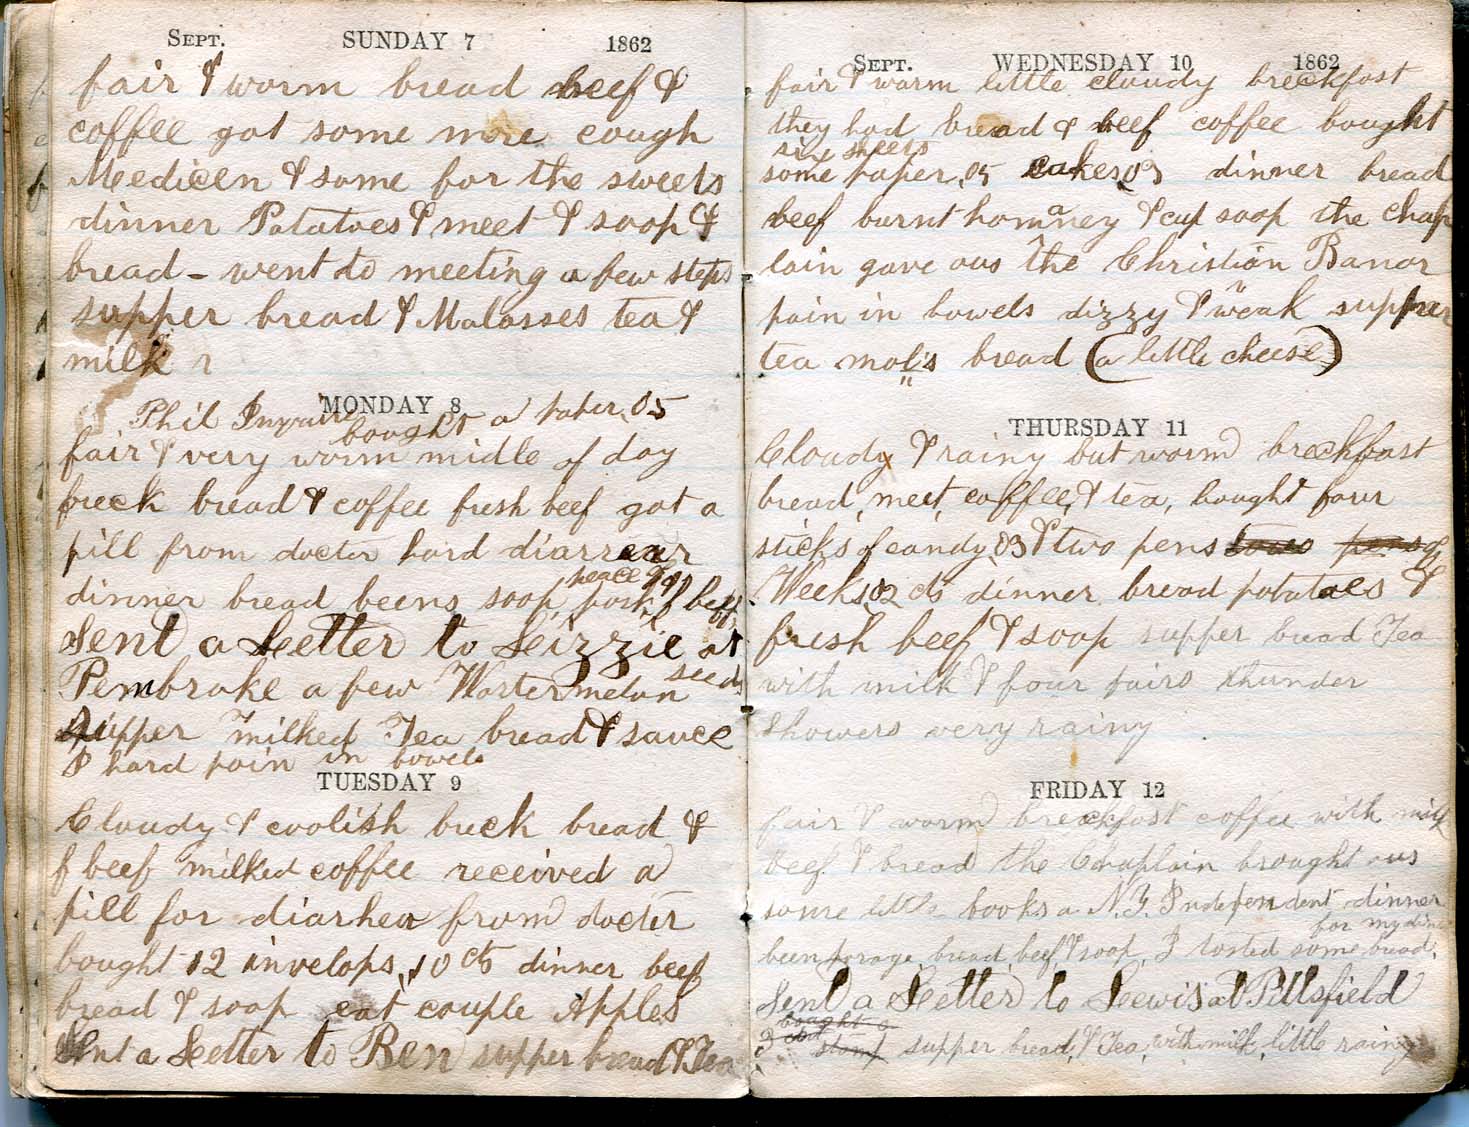 SEPT. SUNDAY 7 1862
fair & worm bread beef &
coffee got some more cough
Meedicen & some for the sweets
dinner Potatoes & meet & soop &
bread - went to meeting a few steps
supper bread & Malasses tea &
milk
MONDAY 8
Phil Inquire bought a paper, 05
fair & very worm midle of day
breck bread & coffee fresh beef got a
pill from docter hard diarrear
dinner bread beens soop, pork & beef,
Sent a Letter to Lizzie at
Pembroke a few Wartermelon seeds
supper milked Tea bread & sauce
& hard pain in bowels
TUESDAY 9
Cloudy & coolish breck bread &
f beef milked coffee received a
pill for diarhea from docter
bought 12 invelops, 10 cts dinner beef
bread & soop eat couple Apples
Sent a Letter to Ben supper bread & Tea
SEPT. WEDNESDAY 10 1862
fair & warm little cloudy breckfast
they had bread & beef coffee bought
six sheets
some paper, 05 cakes, 03 dinner bread
beef burnt homaney & cup soop the Chap
lain gave ous the Christian Banor
pain in bowels dizzy & weak supper
tea mol's bread (a little cheese)
THURSDAY 11
Cloudy & rainy but worm breckfast
bread, meet, coffee, & tea, bought four
sticks of candy, 03 & two pens of
Weeks, 02 cts dinner bread potatoes &
fresh beef & soop supper bread Tea
with milk & four fairs thunder
showers very rainy
FRIDAY 12
fair & worm breckfast coffee with milk
beef & bread the Chaplain brought ous
some little books a N.Y. Independent dinner
for my din
been porage bread, beef, & soop, I tosted some bread,
Sent a Letter to Lewis at Pittsfield
bought a
stamp supper bread, & Tea, with milk, little rainy